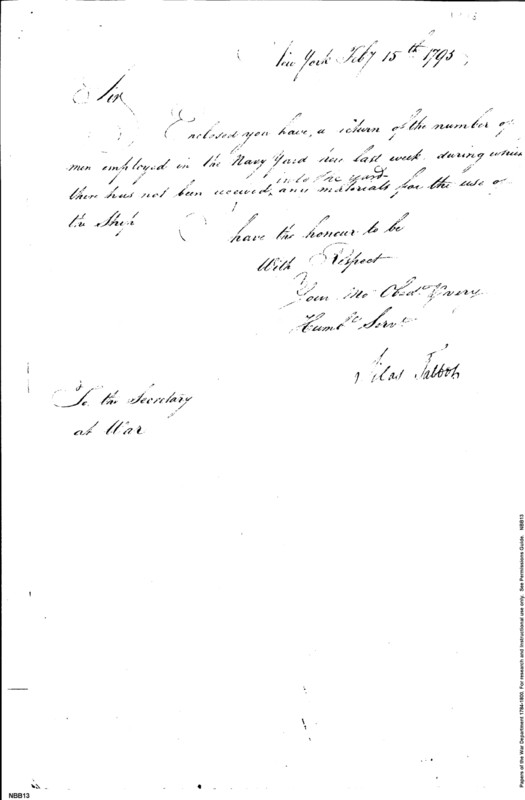 New York Feby 15th 1795
Sir
Enclosed you have, a return of the number of
men employed in the Navy Yard here last week during which
into the yard
there has not been received, any materials for the use of
the Ship
have the honour to be
With Respect
Your Mo Obedt & very
Humble Servt
Silas Talbot
To the Secretary
at War
NBB13
Papers of the War Department 1784-1800. For research and instructional use only. See Permissions Guide. NBB13